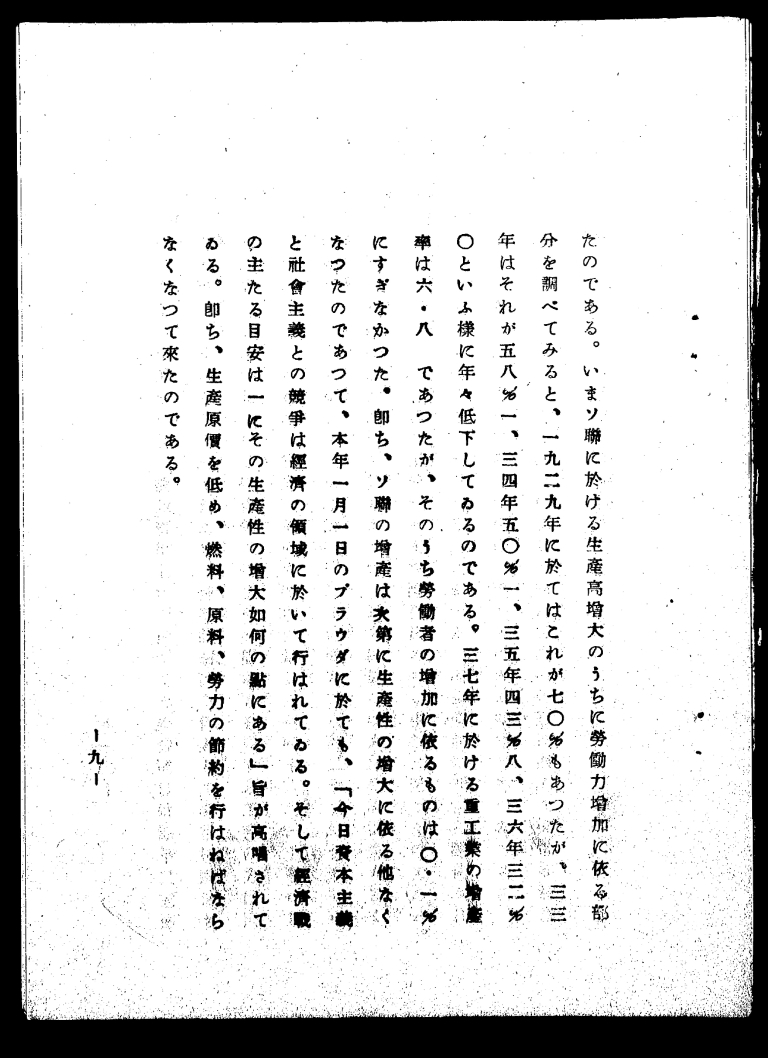 たのである。いまソ聯に於ける生産高増大のうちに勞働力増加に依る部
分を調べてみると、一九二九年に於てはこれが七〇%もあつたが、三三
年はそれが五八%一、三四年五〇%一、三五年四三%八、三六年三二%
〇といふ様に年々低下してゐるのである。三七年に於ける重工業の増産
率は六・八　であつたが、そのうち勞働者の増加に依るものは〇・一%
にすぎなかつた。卽ち、ソ聯の増産は次第に生産性の増大に依る他なく
なつたのであつて、本年一月一日のプラウダに於ても、「今日資本主義
と社會主義との競爭は經濟の領域に於いて行はれてゐる。そして經濟戰
の主たる目安は一にその生産性の増大如何の點にある」旨が高唱されて
ゐる。卽ち、生産原價を低め、燃料、原料、勞力の節約を行はねばなら
なくなつて來たのである。
ー九ー